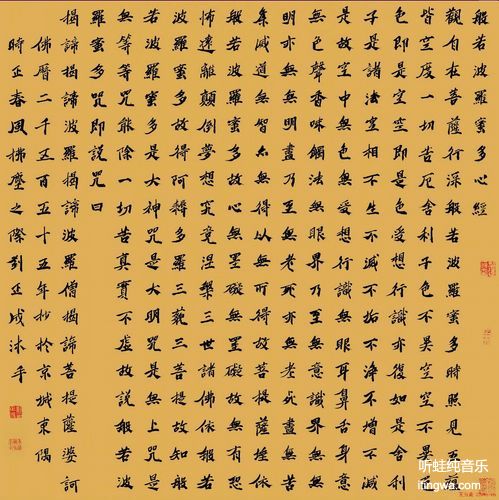 般若波羅蜜多心經
觀自在菩薩行深般若波羅蜜多時照見五蘊
皆空度一切苦厄舍利子色不異空空不異色
色即是空空即是色受想行識亦復如是舍利
子是諸法空相不生不滅不垢不淨不增不減
是故空中無色無受想行識無眼耳鼻舌身意
無色聲香味觸法無眼界乃至無意識界無無
明亦無無明盡乃至無老死亦無老死盡無苦
集滅道無智亦無得以無所得故菩提薩埵依
般若波羅蜜多故心無罣礙無罣礙故無有恐
怖遠離顛倒夢想究竟涅槃三世諸佛依般
若波羅蜜多故得阿耨多羅三藐三菩提故知般
若波羅蜜多是大神咒是大明咒是無上咒是
無等等咒能除一切苦真實不虛故說般若波
羅蜜多咒即說咒曰
揭諦揭諦波羅揭諦波羅僧揭諦菩提薩婆訶
佛曆二千五百五十五年抄於京城東隅
時正春風拂塵之際劉正成沐手
听蛙纯音乐
iringwa.com